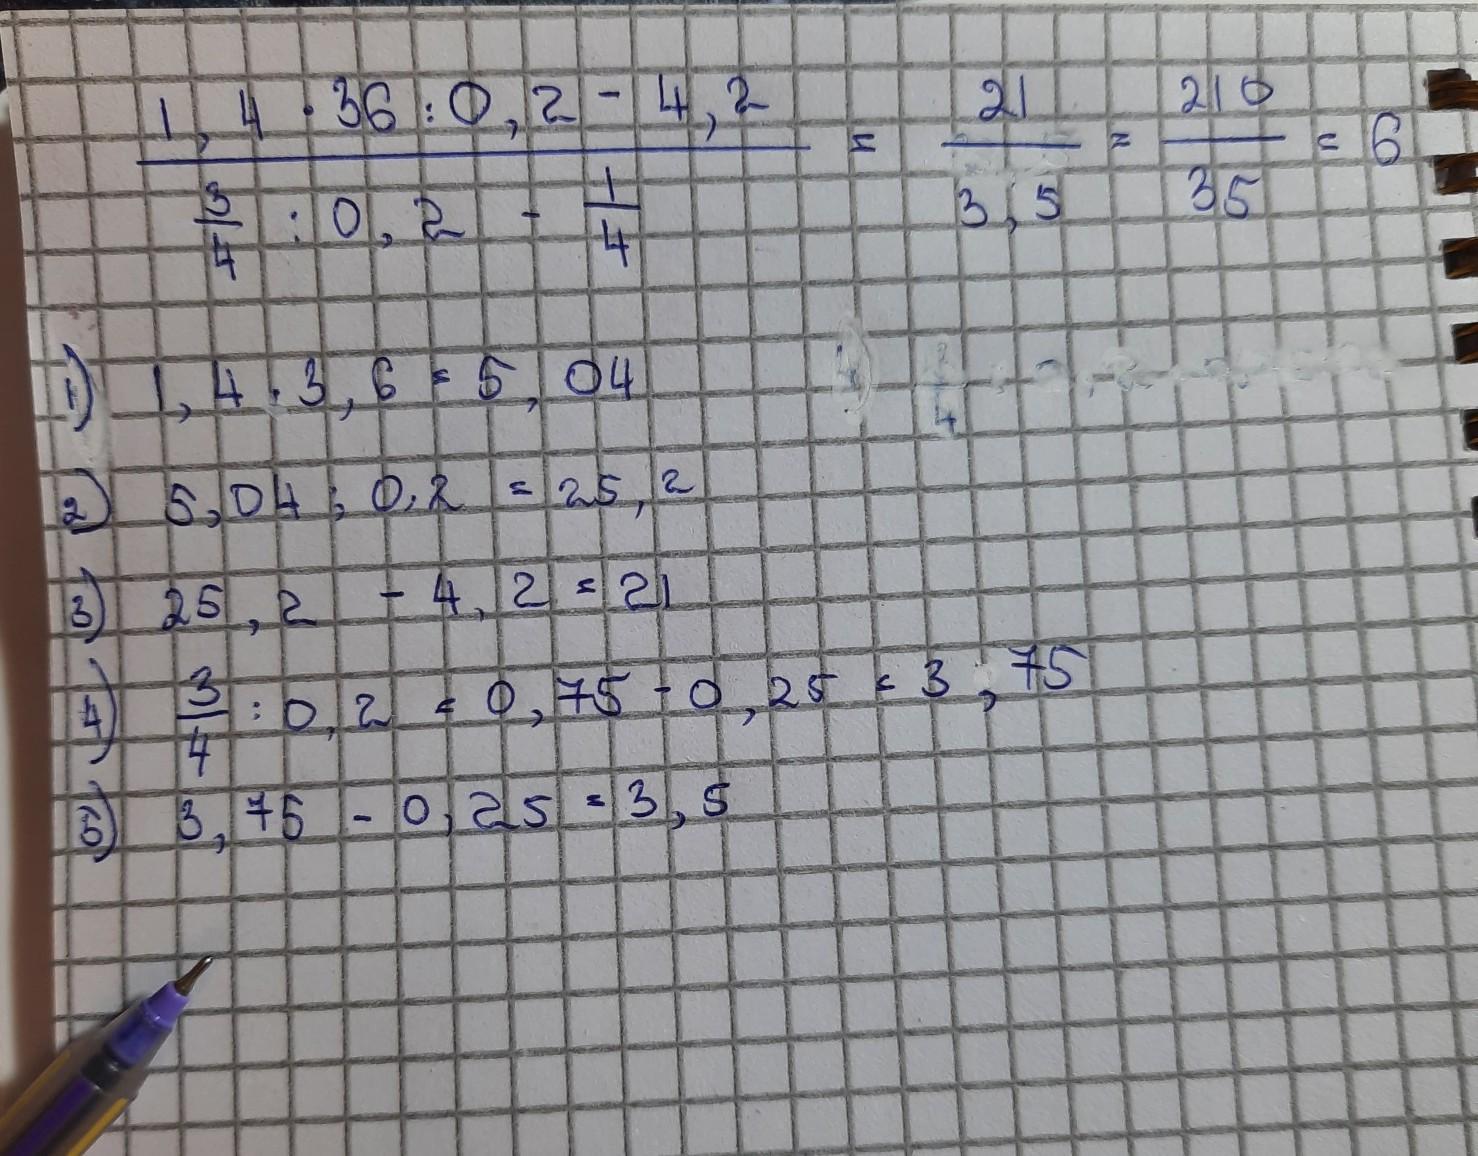 1,4 · 36 : 0,2 - 4,2 / 3/4 : 0,2 - 1/4 = 21/3,5 = 210/35 = 6
1) 1,4 · 3,6 = 5,04
2) 5,04 : 0,2 = 25,2
3) 25,2 - 4,2 = 21
4) 3/4 : 0,2 = 0,75 - 0,25 = 3,75
5) 3,75 - 0,25 = 3,5